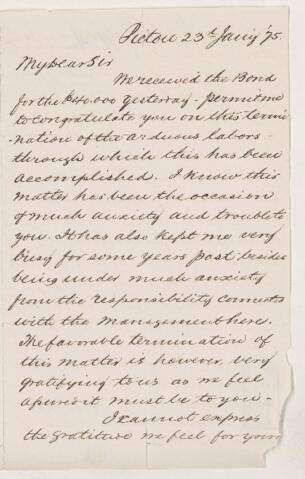 Pictou 23d Jany '75.
My Dear Sir
We received the Bond
for the $40.000 yesterday - permit me
to congratulate you on this termi
-nation of the arduous labors
through which this has been
accomplished. I know this
matter has been the occasion
of much anxiety and trouble to
you. It has also kept me very
busy for some years past besides
being under much anxiety
from the responsibility connectd
with the management here.
The favorable termination of
this matter is however, very
gratifying to us as we feel
assured it must be to you -
I cannot express
the gratitude we feel for your